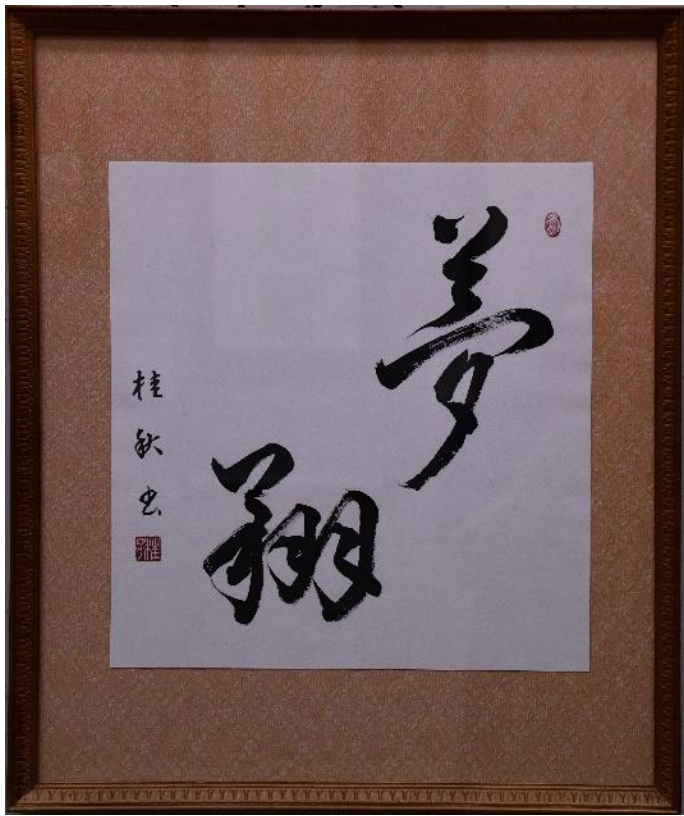 夢
翔
桂秋书